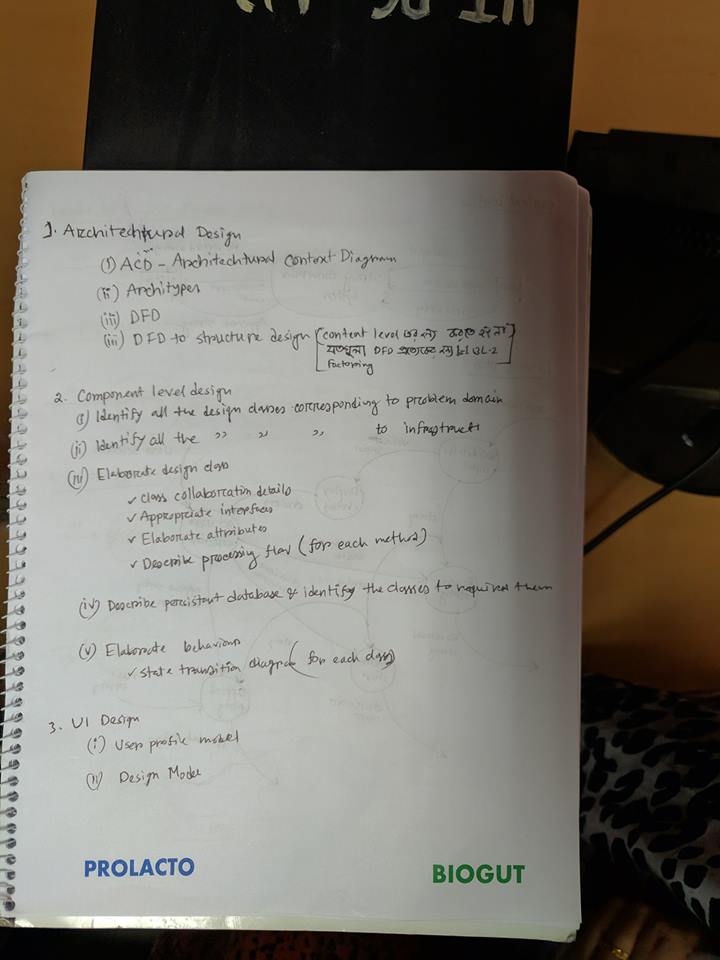 1. Architechtural Design
(i) ACD - Architechtural Context Diagram
(ii) Architypes
(iii) DFD
(iii) DFD to structure design [content level এর জন্য করতে হবে না]
যতগুলা DFD প্রত্যেকের জন্য
Factoring
2. Component level design
(i) Identify all the design classes corresponding to problem domain
(ii) Identify all the " " " to infrastruct
(iii) Elaborate design class
✓ Class collaboration details
✓ Appropriate interfaces
✓ Elaborate attributes
✓ Describe processing flow (for each method)
(iv) Describe persistent database & identify the classes to required them
(v) Elaborate behaviour
✓ State transition diagram (for each class)
3. UI Design
(i) User profile model
(ii) Design Model
PROLACTO BIOGUT